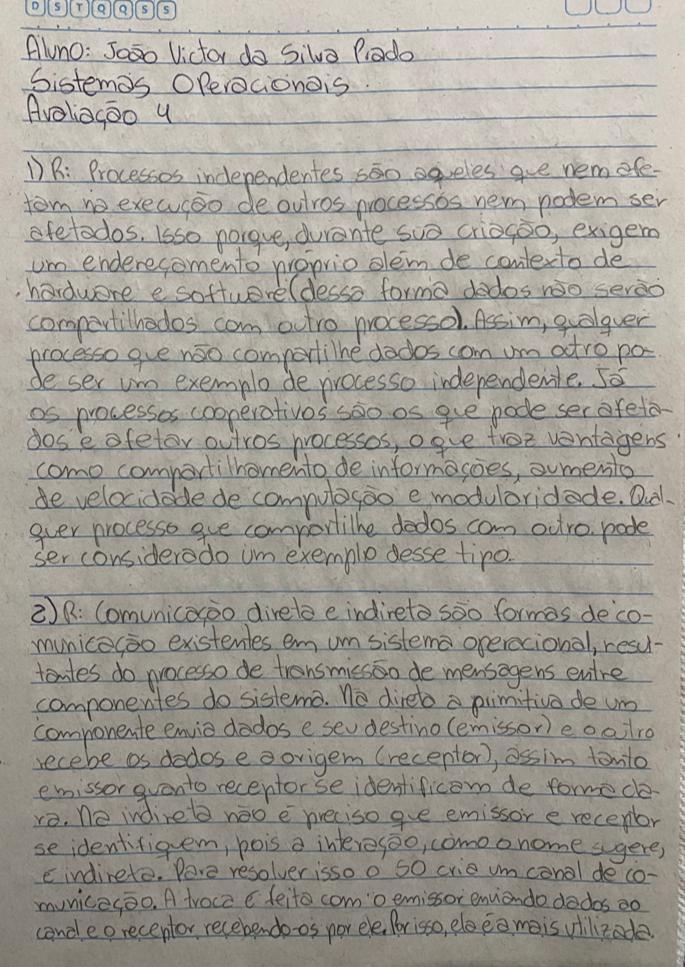 D S T Q Q S S
Aluno: João Victor da Silva Prado
Sistemas Operacionais.
Avaliação 4
1) R: Processos independentes são aqueles que nem afe-
tam na execução de outros processos nem podem ser
afetados. Isso porque, durante sua criação, exigem
um endereçamento próprio além de contexto de
hardware e software (dessa forma dados não serão
compartilhados com outro processo). Assim, qualquer
processo que não compartilhe dados com um outro po-
de ser um exemplo de processo independente. Já
os processos cooperativos são os que pode ser afeta-
dos e afetar outros processos, o que traz vantagens
como compartilhamento de informações, aumento
de velocidade de computação e modularidade. Qual-
quer processo que compartilhe dados com outro pode
ser considerado um exemplo desse tipo.
2) R: Comunicação direta e indireta são formas de co-
municação existentes em um sistema operacional, resul-
tantes do processo de transmissão de mensagens entre
componentes do sistema. Na direta a primitiva de um
componente envia dados e seu destino (emissor) e o outro
recebe os dados e a origem (receptor), assim tanto
emissor quanto receptor se identificam de forma cla-
ra. Na indireta não é preciso que emissor e receptor
se identifiquem, pois a interação, como o nome sugere,
é indireta. Para resolver isso o SO cria um canal de co-
municação. A troca é feita com o emissor enviando dados ao
canal e o receptor recebendo-os por ele. Por isso, ela é a mais utilizada.